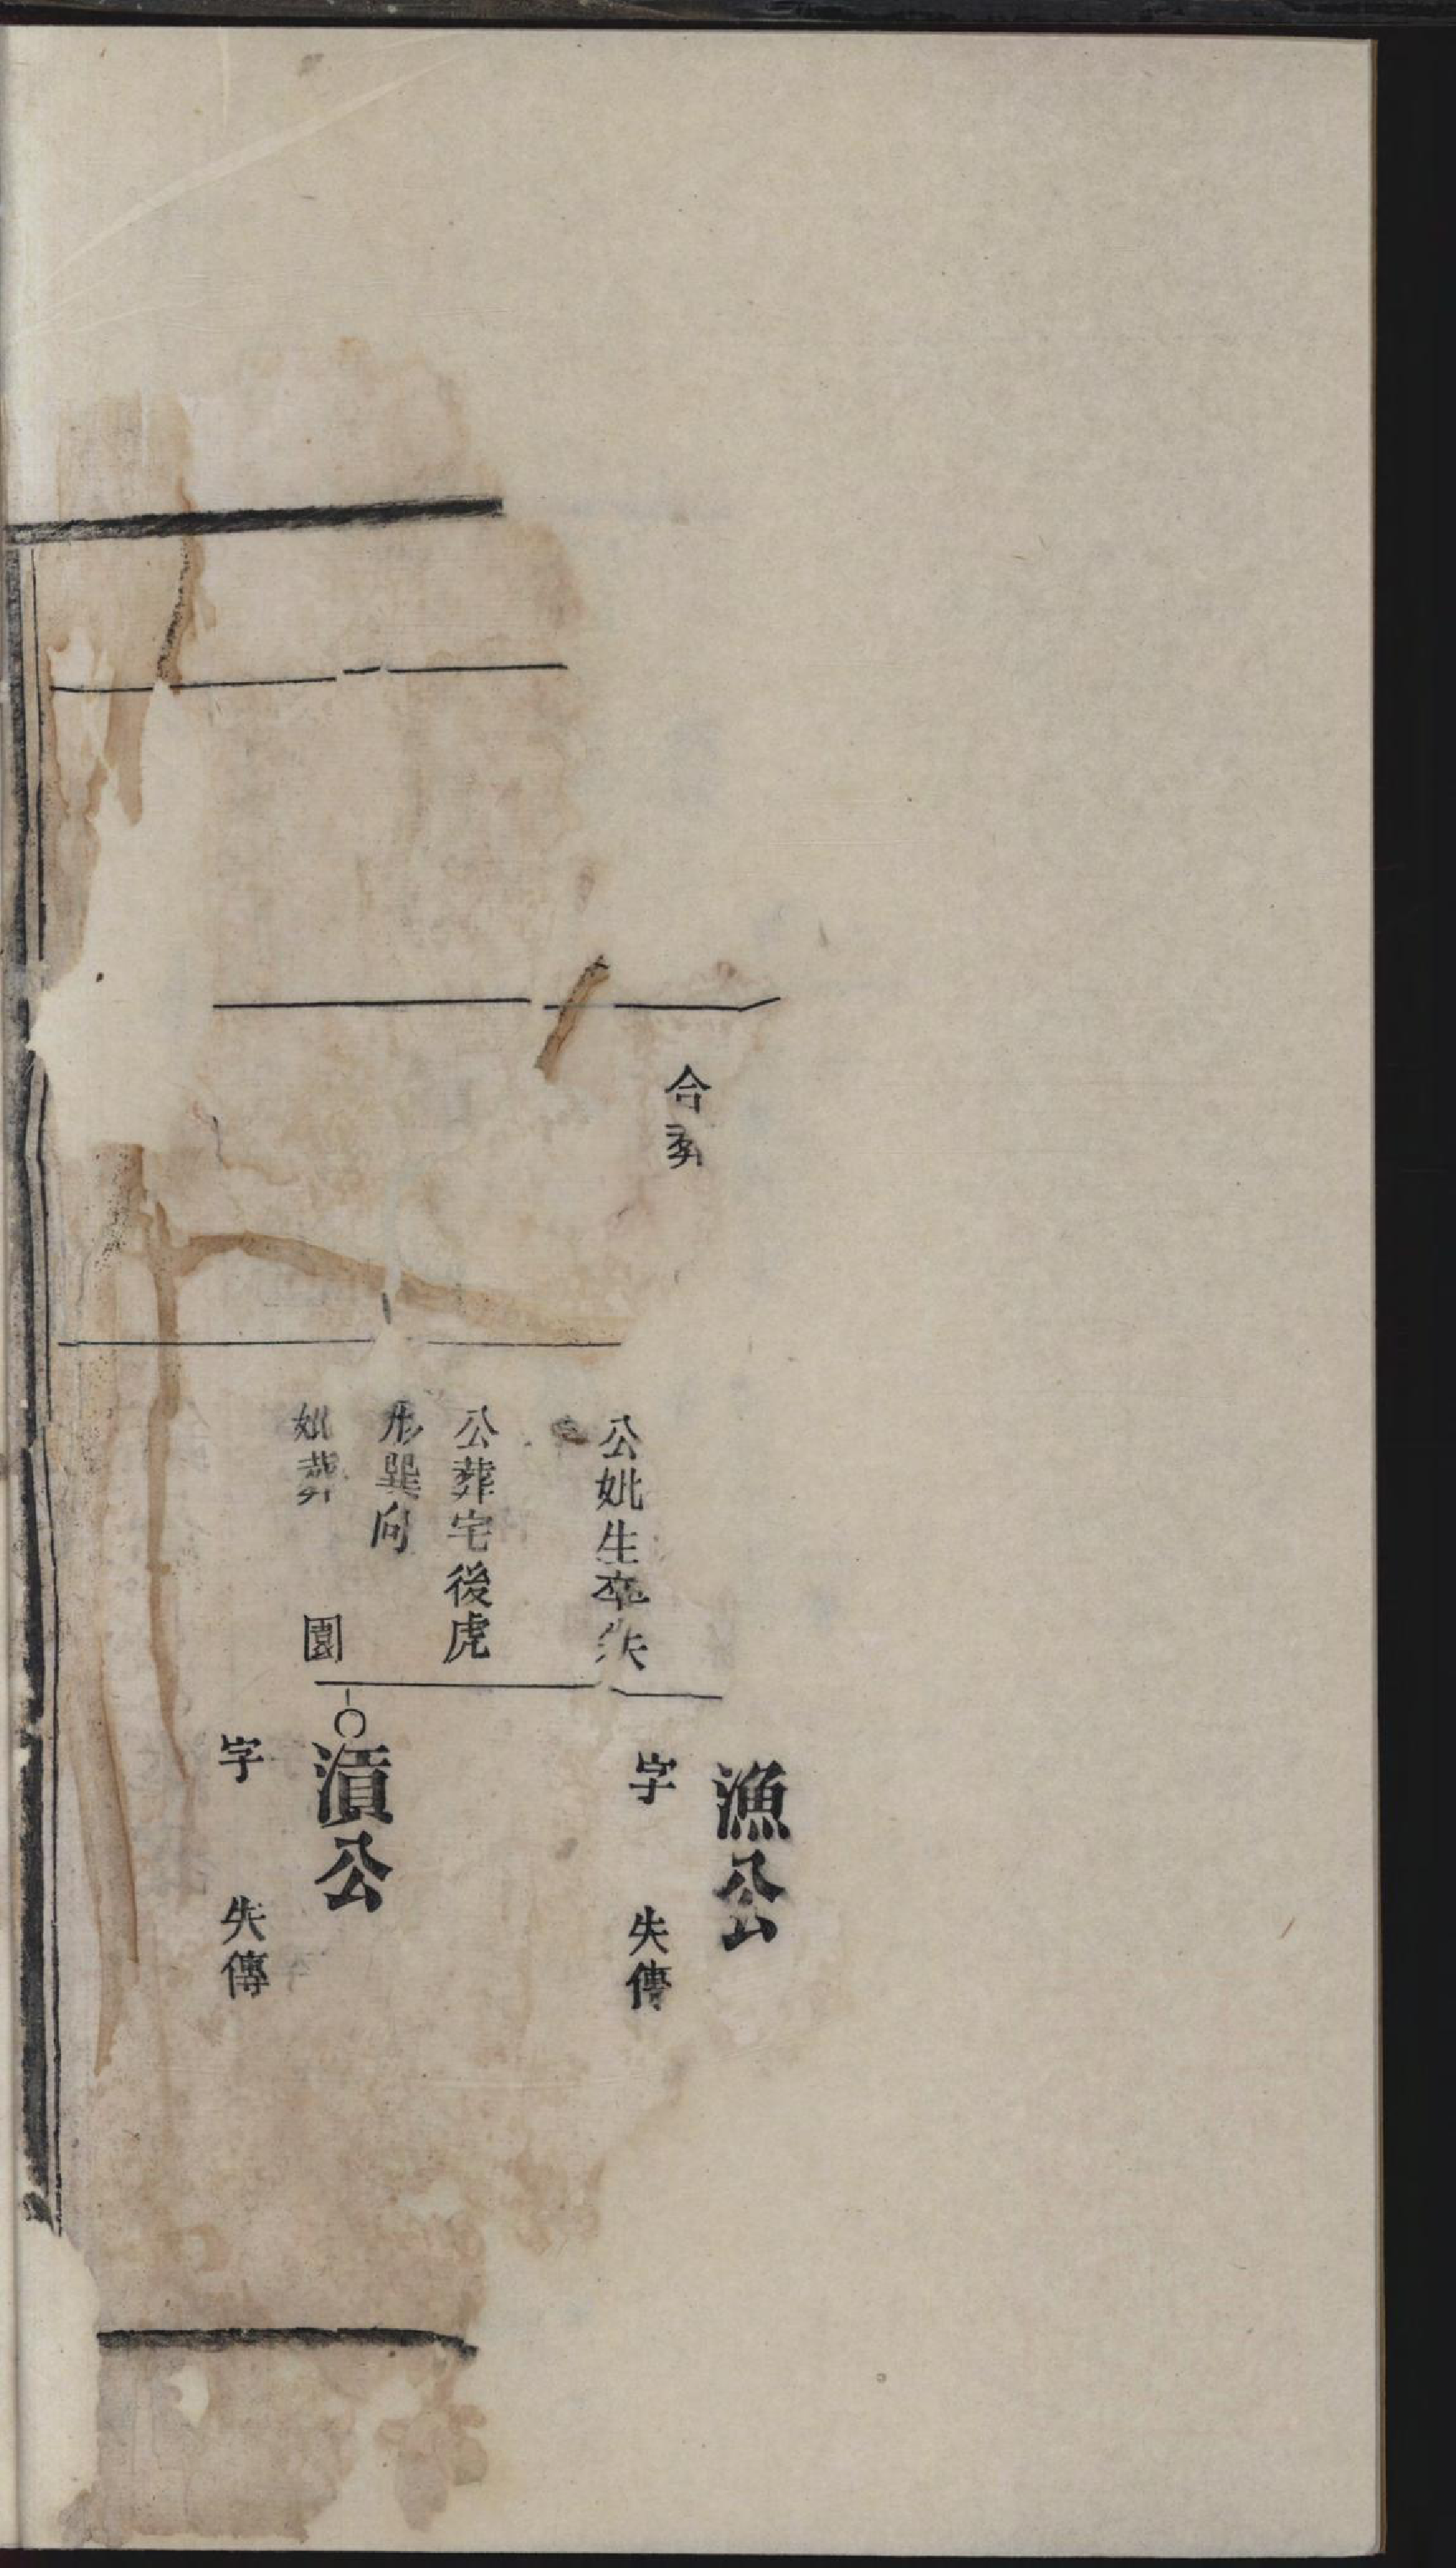 合葬
公妣生卒失
公葬宅後虎
形巽向
妣葬 園
漁公
字 失傳
濆公
字 失傳